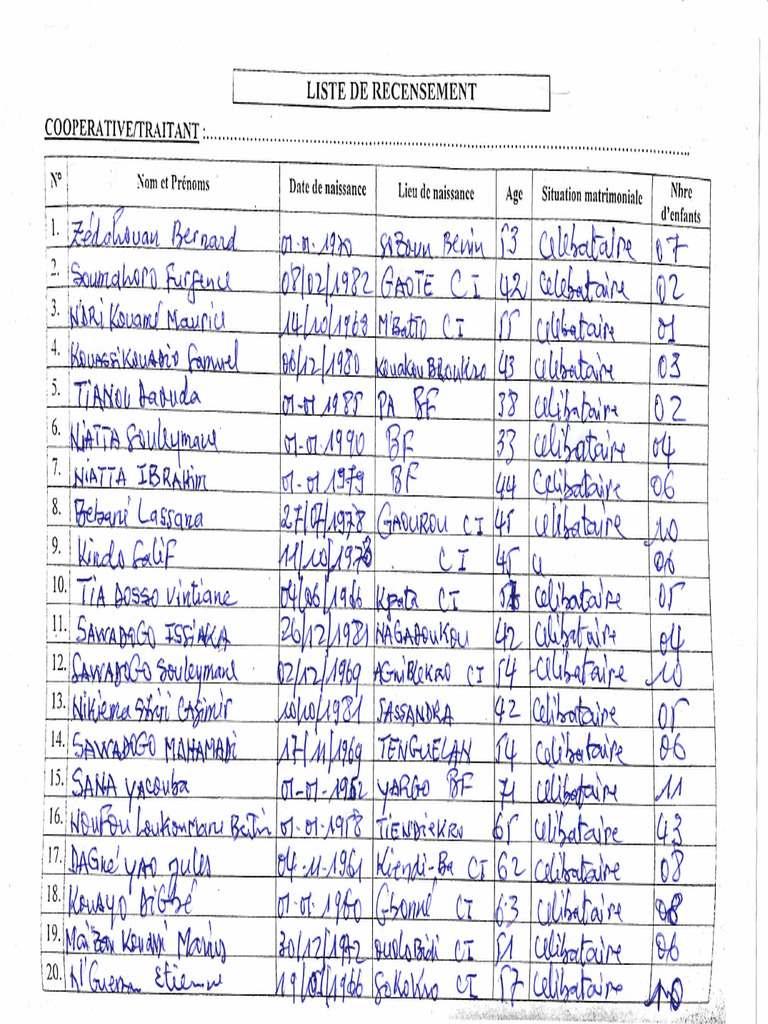 LISTE DE RECENSEMENT
COOPERATIVE/TRAITANT :
N° Nom et Prénoms Date de naissance Lieu de naissance Age Situation matrimoniale Nbre d'enfants
1. Bernard 01-01-1970 Benin 53 Celibataire 07
2. Soumahoro 08/02/1982 GAOTE CI 42 Celibataire 02
3. N'DRI Kouamé Maurice 14/10/1968 M'Batto CI 55 Celibataire 01
4. KOUASSI KOUADIO Samuel 06/12/1980 43 Celibataire 03
5. TIANOU Daouda 01-01 1985 PA BF 38 Celibataire 02
6. NIATTA Souleymane 01-01-1990 BF 33 Celibataire 04
7. NIATTA IBRAHIM 01-01 1979 BF 44 Celibataire 06
8. Lassana 27/07/1978 GAOUROU CI 45 Celibataire 10
9. Kindo Salif 11/10/1978 CI 45 06
10. TIA DOSSO Vintiane 04/06/1966 Kpata CI Celibataire 05
11. SAWADOGO ISSIAKA 26/12/1981 NAGADOUKOU 42 Celibataire 04
12. SAWADOGO Souleymane 02/12/1969 AGNIBLEKRO CI 54 Celibataire 10
13. Nikiema Casimir 10/10/1981 SASSANDRA 42 Celibataire 05
14. SAWADOGO MAHAMADI 17/11/1969 TENGUELAN 54 Celibataire 06
15. SANA Yacouba 01-01-1952 YARGO BF 71 Celibataire 11
16. NOUFOU 01-01-1958 TIENDIEKRO 65 Celibataire 43
17. DAGNE YAO Jules 04-11-1961 Kiendi-Ba CI 62 Celibataire 08
18. KOUAYO 01-01-1960 CI 63 Celibataire 08
19. Marius 30/12/1972 CI 51 Celibataire 06
20. N'Guessan Etienne SOKOKRO CI 57 Celibataire 10